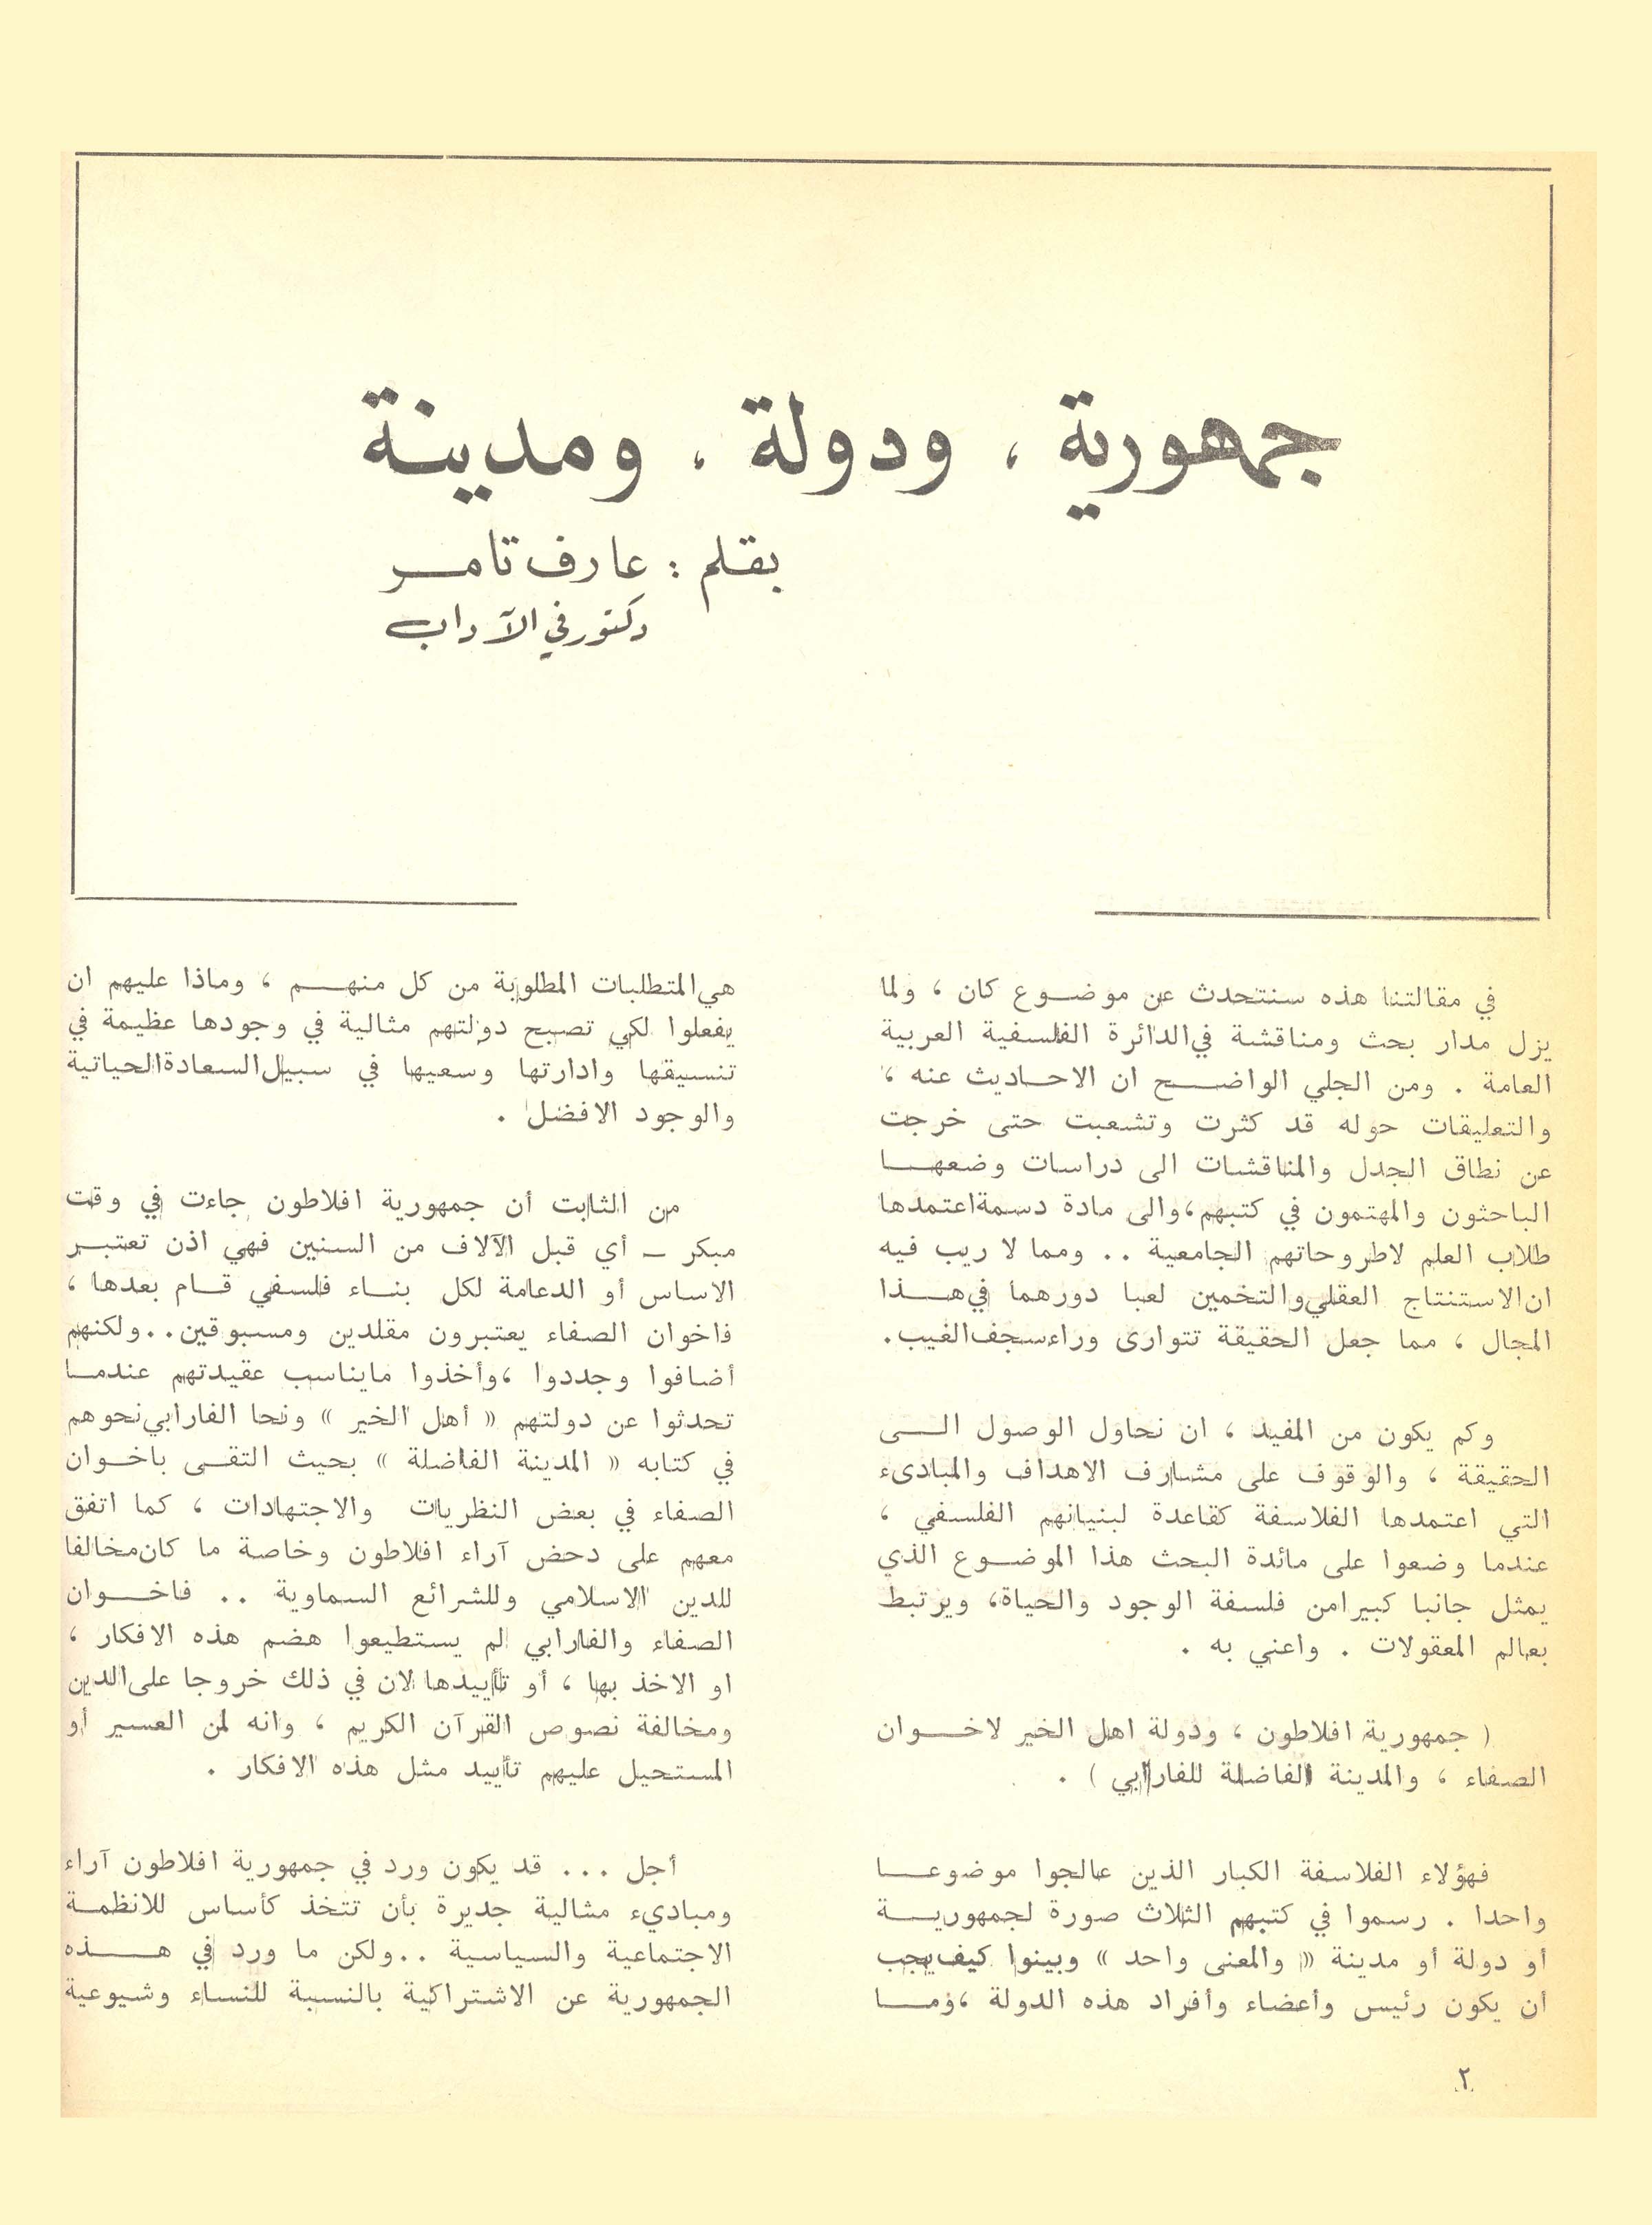 جمهورية ، ودولة ، ومدينة
بقلم : عارف تامر
دكتور في الآداب
في مقالتنا هذه سنتحدث عن موضوع كان ، ولما
يزل مدار بحث ومناقشة في الدائرة الفلسفية العربية
العامة . ومن الجلي الواضح ان الاحاديث عنه ،
والتعليقات حوله قد كثرت وتشعبت حتى خرجت
عن نطاق الجدل والمناقشات الى دراسات وضعها
الباحثون والمهتمون في كتبهم ، والى مادة دسمة اعتمدها
طلاب العلم لاطروحاتهم الجامعية .. ومما لا ريب فيه
ان الاستنتاج العقلي والتخمين لعبا دورهما في هذا
المجال ، مما جعل الحقيقة تتوارى وراء سجف الغيب .
وكم يكون من المفيد ، ان نحاول الوصول الى
الحقيقة ، والوقوف على مشارف الاهداف والمبادىء
التي اعتمدها الفلاسفة كقاعدة لبنيانهم الفلسفي ،
عندما وضعوا على مائدة البحث هذا الموضوع الذي
يمثل جانبا كبيرا من فلسفة الوجود والحياة ، ويرتبط
بعالم المعقولات . واعني به .
( جمهورية افلاطون ، ودولة اهل الخير لاخوان
الصفاء ، والمدينة الفاضلة للفارابي ) .
فهؤلاء الفلاسفة الكبار الذين عالجوا موضوعا
واحدا . رسموا في كتبهم الثلاث صورة لجمهورية
أو دولة أو مدينة « والمعنى واحد » وبينوا كيف يجب
أن يكون رئيس وأعضاء وأفراد هذه الدولة ، وما
هي المتطلبات المطلوبة من كل منهم ، وماذا عليهم ان
يفعلوا لكي تصبح دولتهم مثالية في وجودها عظيمة في
تنسيقها وادارتها وسعيها في سبيل السعادة الحياتية
والوجود الافضل .
من الثابت أن جمهورية افلاطون جاءت في وقت
مبكر – أي قبل الآلاف من السنين فهي اذن تعتبر
الاساس أو الدعامة لكل بناء فلسفي قام بعدها ،
فاخوان الصفاء يعتبرون مقلدين ومسبوقين .. ولكنهم
أضافوا وجددوا ، وأخذوا ما يناسب عقيدتهم عندما
تحدثوا عن دولتهم « أهل الخير » ونحا الفارابي نحوهم
في كتابه « المدينة الفاضلة » بحيث التقى باخوان
الصفاء في بعض النظريات والاجتهادات ، كما اتفق
معهم على دحض آراء افلاطون وخاصة ما كان مخالفا
للدين الاسلامي وللشرائع السماوية .. فاخوان
الصفاء والفارابي لم يستطيعوا هضم هذه الافكار ،
او الاخذ بها ، أو تأييدها لان في ذلك خروجا على الدين
ومخالفة نصوص القرآن الكريم ، وانه لمن العسير أو
المستحيل عليهم تأييد مثل هذه الافكار .
أجل ... قد يكون ورد في جمهورية افلاطون آراء
ومباديء مثالية جديرة بأن تتخذ كأساس للانظمة
الاجتماعية والسياسية .. ولكن ما ورد في هذه
الجمهورية عن الاشتراكية بالنسبة للنساء وشيوعية
٢